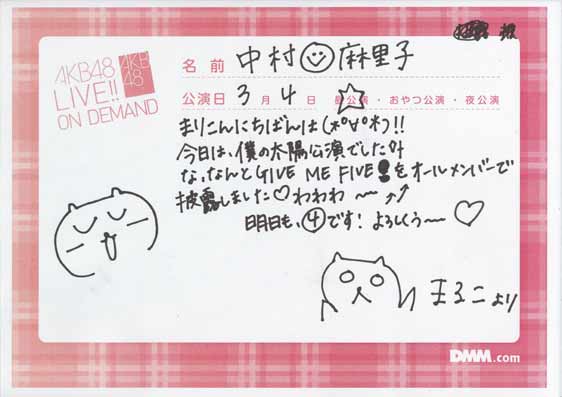 AKB48
LIVE!!
ON DEMAND
AKB
48
名前 中村☺麻里子
公演日 3月4日 昼公演・おやつ公演・夜公演
まりこんにちばんは(*°∀°*)!!
今日は、僕の太陽公演でした
な、なんとGIVE ME FIVE!をオールメンバーで
披露しました♡わわわ〜〜↑↑
明日も、④です!よろしくう〜〜♡
まりこより
DMM.com